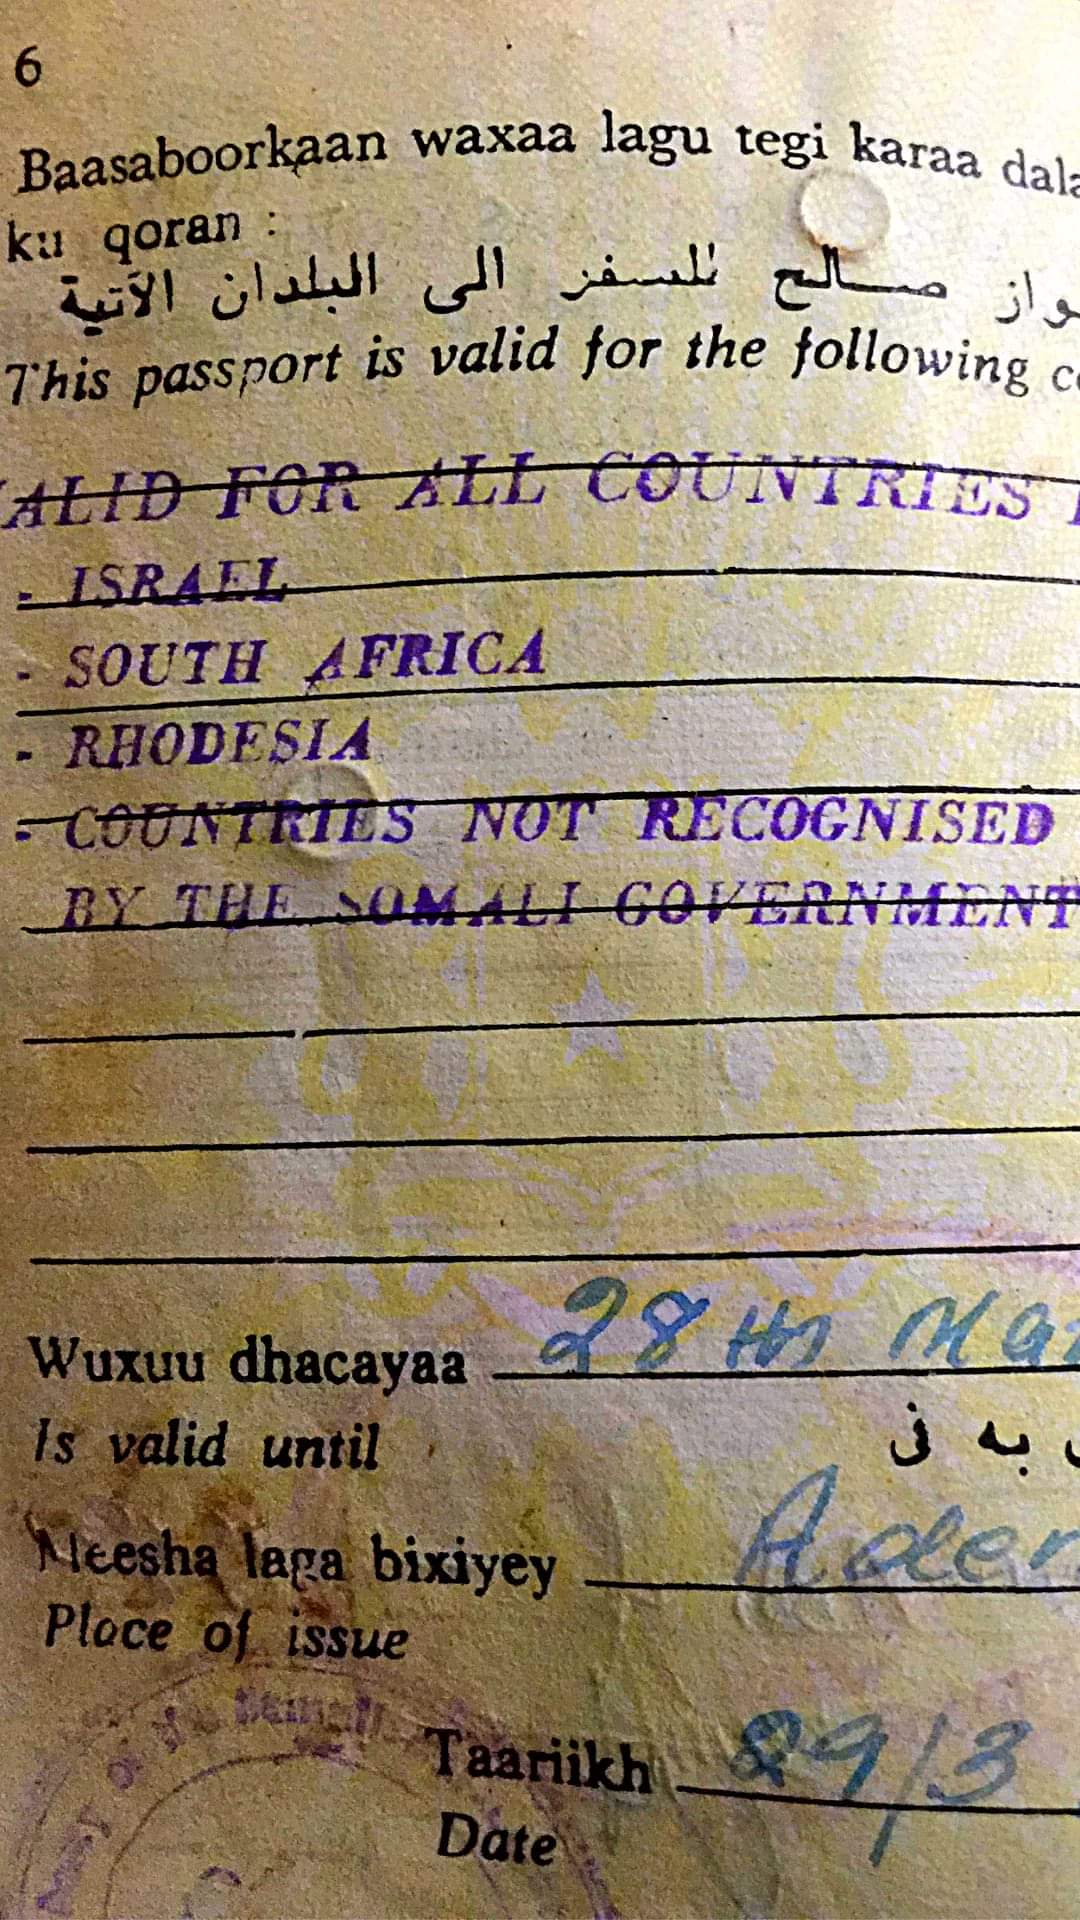 6
Baasaboorkaan waxaa lagu tegi karaa dala
ku qoran :
واز صالح للسفر الى البلدان الآتية
This passport is valid for the following co
VALID FOR ALL COUNTRIES
- ISRAEL
- SOUTH AFRICA
- RHODESIA
- COUNTRIES NOT RECOGNISED
BY THE SOMALI GOVERNMENT
Wuxuu dhacayaa 28th Mar
Is valid until
ل به في
Meesha laga bixiyey Aden
Place of issue
Taariikh 29/3
Date